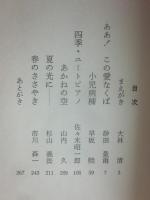 目次
まえがき 大林清 3
ああ！この愛なくば 砂田量爾 7
小児病棟 早坂暁 59
四季・ユートピアノ 佐々木昭一郎 105
あかねの空 山内久 159
夏の光に…… 杉山義法 211
春のささやき 市川森一 243
あとがき 267